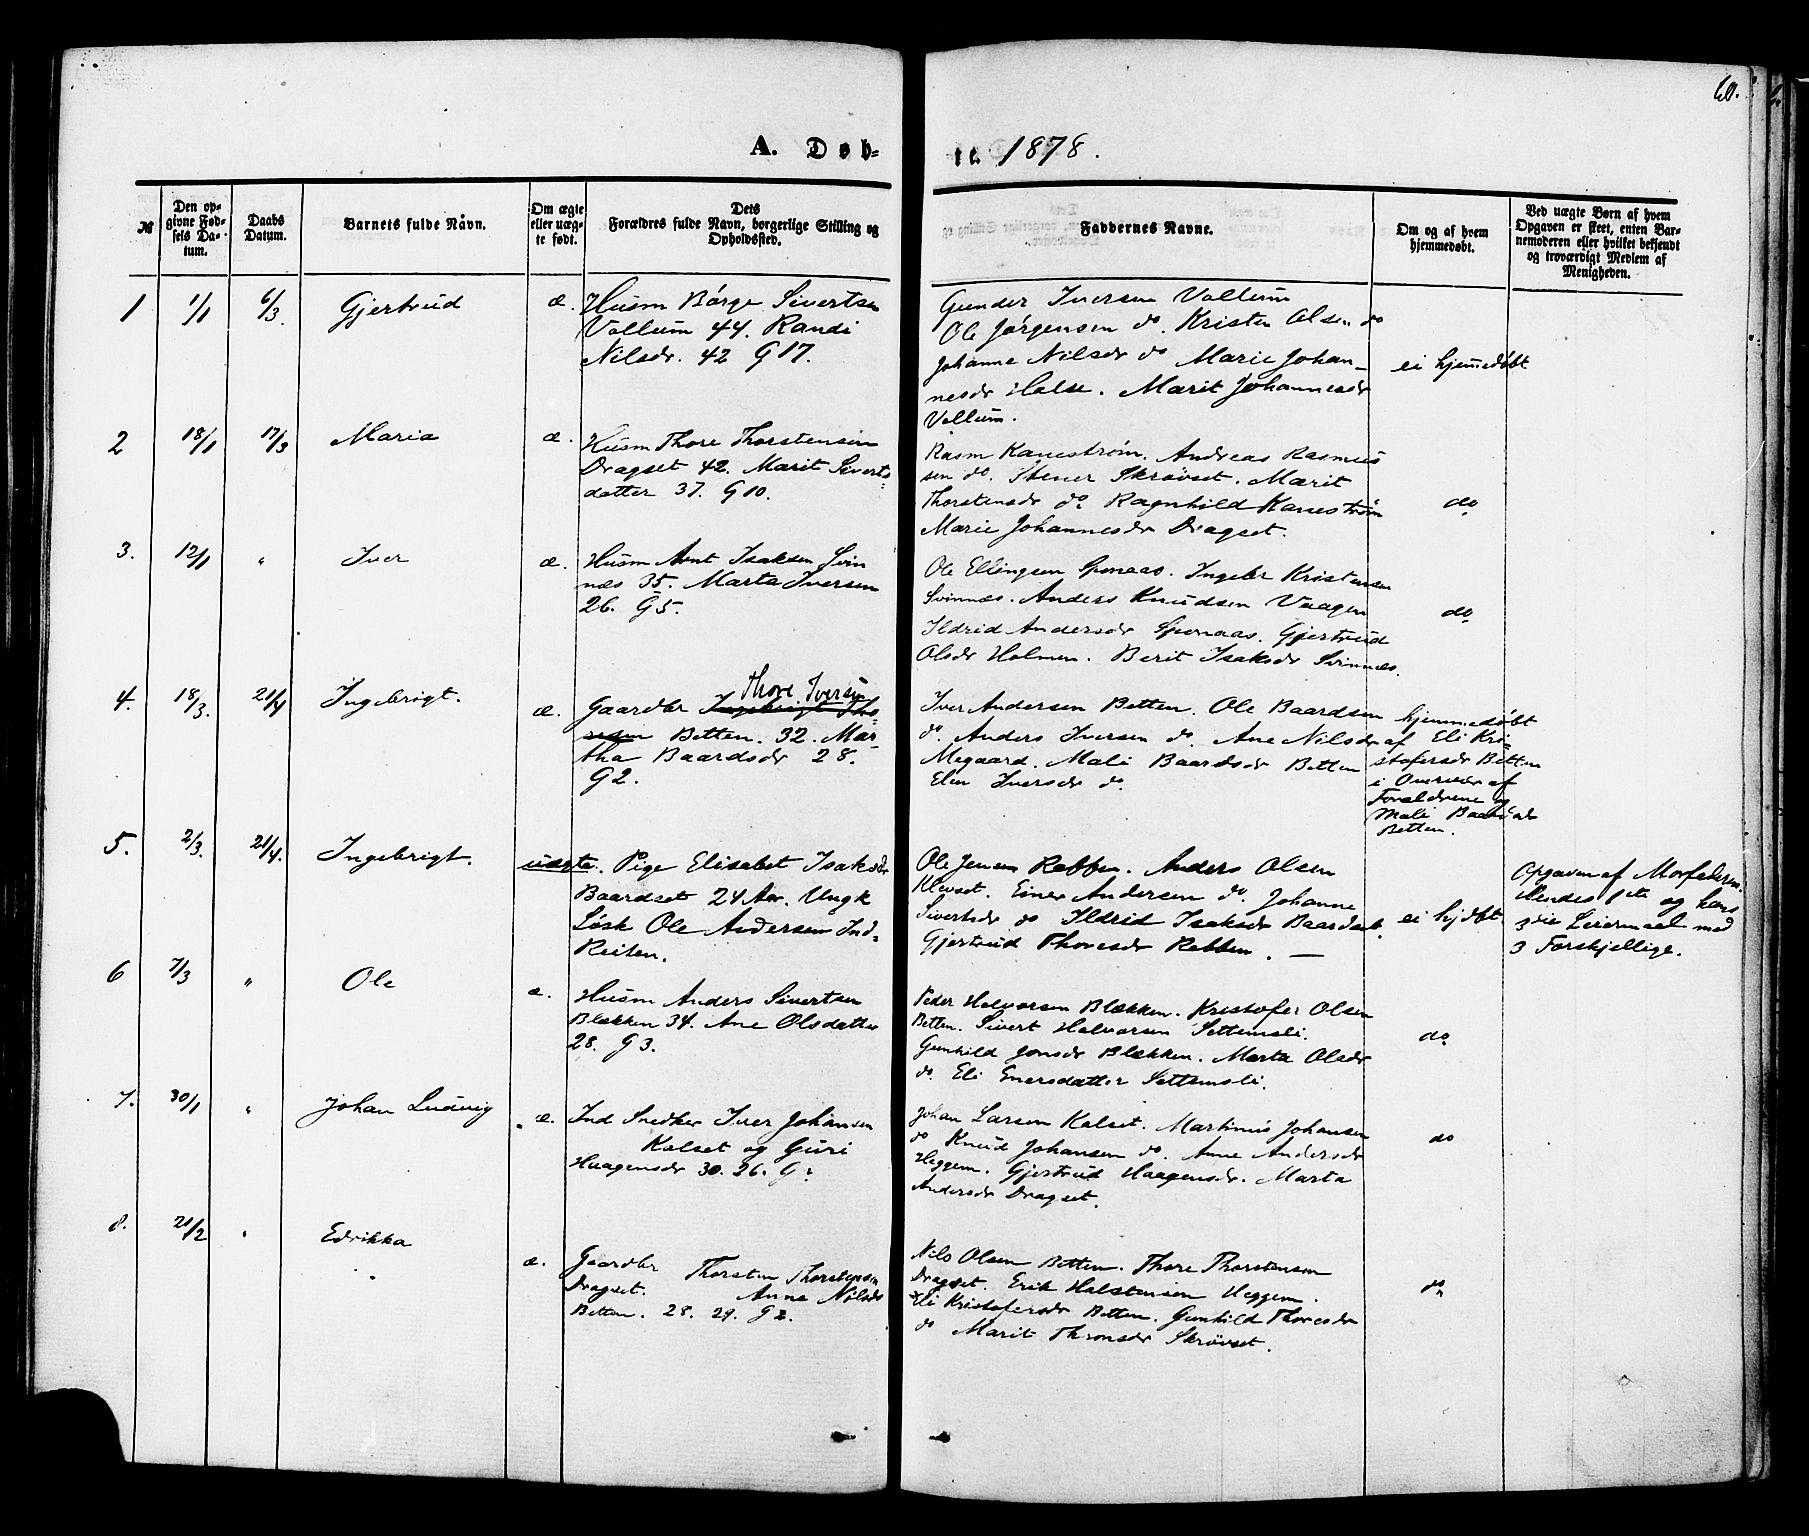 60.
A. Døb-
te. 1878.
№
Den op-
givne Fød-
sels Da-
tum.
Daabs
Datum.
Barnets fulde Navn.
Om ægte
eller uæg-
te født.
Dets
Forældres fulde Navn, borgerlige Stilling og
Opholdssted.
Faddernes Navne.
Om og af hvem
hjemmedøbt.
Ved uægte Børn af hvem
Opgaven er skeet, enten Bar-
nemoderen eller hvilket bekjendt
og troværdigt Medlem af
Menigheden.
1
1/1
6/3.
Gjertrud
æ.
Husm Børge Sivertsen
Vollum 44. Randi
Nilsdr. 42 G 17.
Gunder Iversen Vollum
Ole Jørgensen do. Kristen Olsen do
Johanne Nilsdr do Marie Johan-
nesdr Halse. Marit Johannesdr
Vollum.
ei hjemmedøbt
2
18/1
17/3
Maria
æ.
Husm Thore Thorstensen
Dragset 42. Marit Siverts
datter 37. G 10.
Rasm Kanestrøm. Andreas Rasmus
sen do. Stener Skrøvset. Marit
Thorstensdr do. Ragnhild Kanestrøm
Marie Johannesdr Dragset.
do
3.
12/1
"
Iver
æ.
Husm Arnt Isaksen Svin
næs 35. Marta Iversen
26. G 5.
Ole Ellingsen Sponaas. Ingebr Kristensen
Svinnæs. Anders Knudsen Vaagen
Ildrid Andersdr Sponaas. Gjertrud
Olsdr Holmen. Berit Isaksdr Svinnæs.
do
4.
18/3.
21/4
Ingebrigt.
æ.
Thore Iversen
Gaardbr Ingebrigt Tho-
resen Betten. 32. Mar-
tha Baardsdr 28.
G 2.
Iver Andersen Betten. Ole Baardsen
do. Anders Iversen do. Ane Nilsdr
Megaard. Mali Baardsdr Betten
Elen Iversdr do.
hjemmedøbt
af Eli Kri-
stofersdr Betten
i Overvær af
Forældrene og
Mali Baardsdr
Betten.
5.
2/3.
21/4.
Ingebrigt.
uægte.
Pige Elisabet Isaksdr
Baardset 24 Aar. Ungk
Løsk Ole Andersen Ind-
Reiten.
Ole Jensen Rabben. Anders Olsen
Klevset. Einer Andersen do. Johanne
Sivertsdr do Ildrid Isaksdr Baardset.
Gjertrud Thoresdr Rabben. —
ei hjdøbt
Opgaven af Morfaderen.
Hendes 1ste og hans
3die Leiermaal med
3 Forskjellige.
6
7/3
"
Ole
æ.
Husm Anders Sivertsen
Blækken 34. Ane Olsdatter
28. G 3.
Peder Halvorsen Blækken. Kristofer Olsen
Betten. Sivert Halvorsen Settemsli.
Gunhild Jonsdr Blækken. Marta Olsdr
do. Eli Enersdatter Settemsli.
do
7.
30/1
"
Johan Ludvig
æ.
Ind Snedker Iver Johansen
Kalset og Guri
Haagensdr 30. 26. G
Johan Larsen Kalset. Martinus Johansen
do Knud Johansen do. Anne Andersdr
Heggem. Gjertrud Haagensdr. Marta
Andersdr Dragset.
do
8.
21/2
"
Edrikka
æ.
Gaardbr Thorsten Thorstensen
Dragset. Anne Nilsdr
Betten. 28. 29. G 2.
Nils Olsen Betten. Thore Thorstensen
Dragset. Erik Halstensen Heggem.
Eli Kristofersdr Betten. Gunhild Thoresdr
do Marit Thronsdr Skrøvset.
do